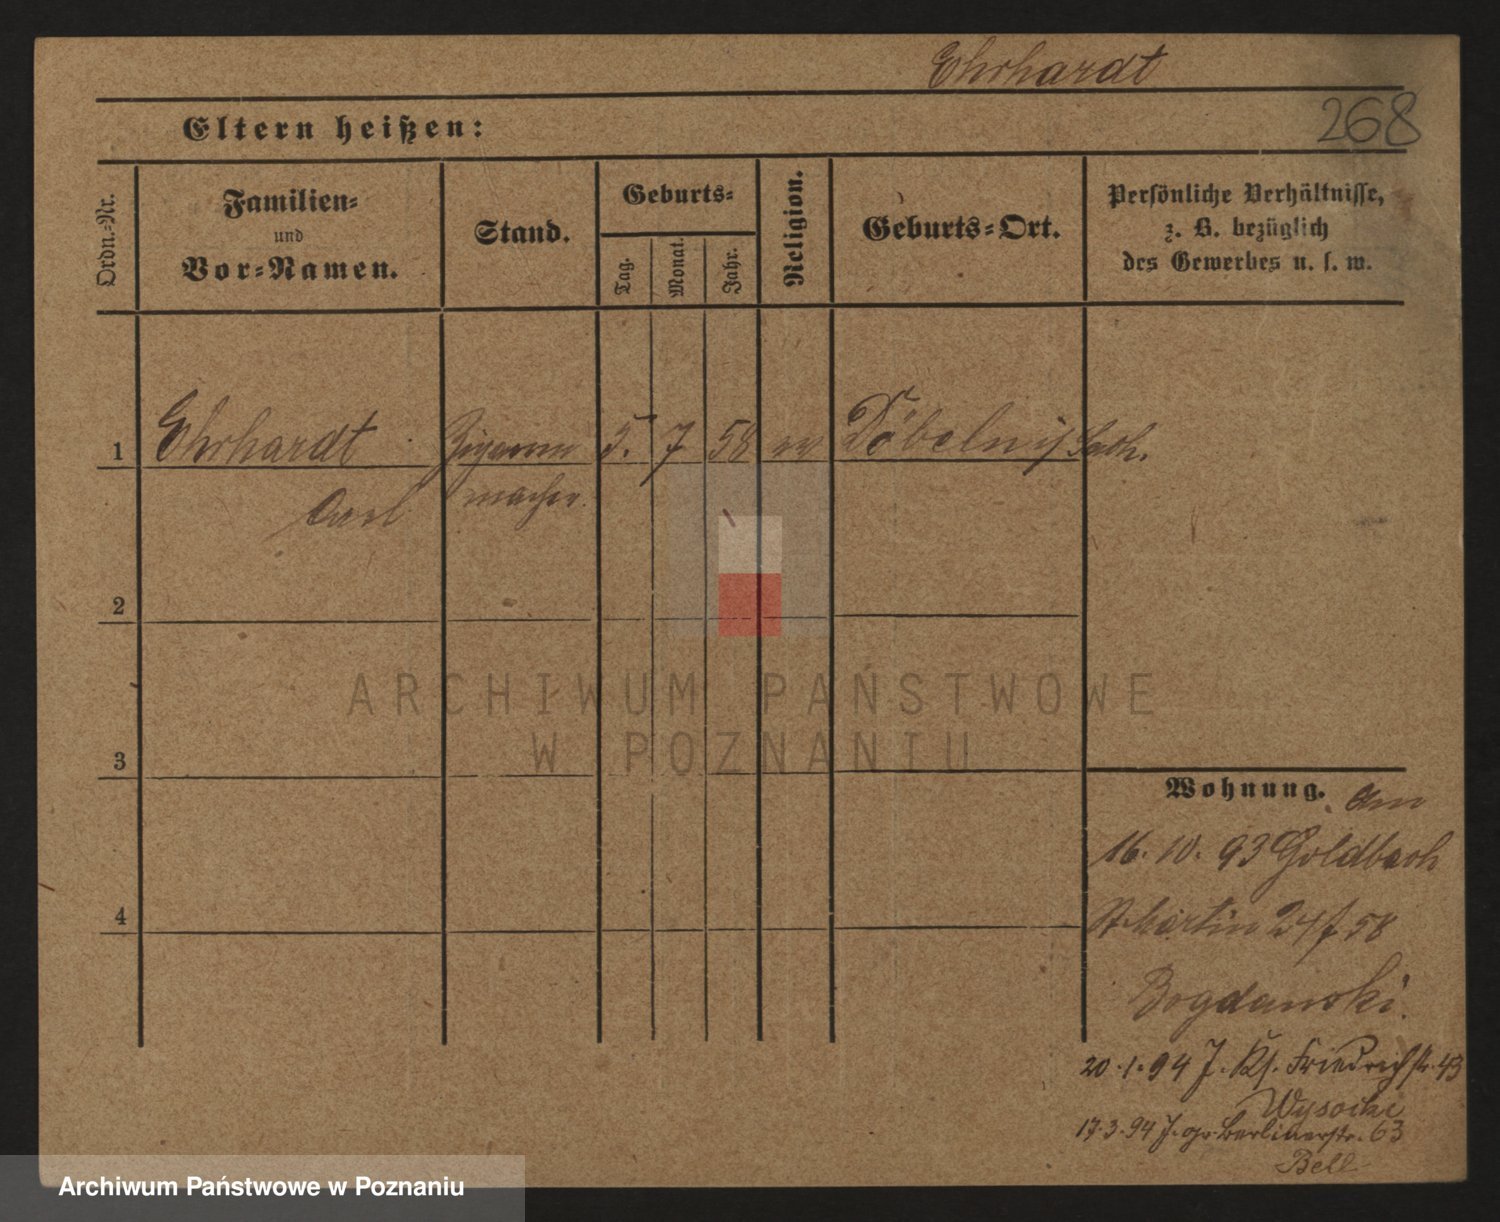 Ehrhardt
268
Eltern heißen:
Ordn.-Nr.
Familien-
und
Vor-Namen.
Stand.
Geburts-
Tag.
Monat.
Jahr.
Religion.
Geburts-Ort.
Persönliche Verhältnisse,
z. B. bezüglich
des Gewerbes u. s. w.
1 Ehrhardt Zigarren 5. 7 58 ev Döbeln i/ Sach.
Carl macher
2
3
4
ARCHIWUM PAŃSTWOWE
W POZNANIU
Wohnung. Am
16. 10. 93 Goldbach
St Martin 24/ 58
Bogdanski.
20.1.94 J. Ks. Friedrichstr. 43
Wysocki
17.3.94 J. gr. Berlinerstr. 63
Bell
Archiwum Państwowe w Poznaniu